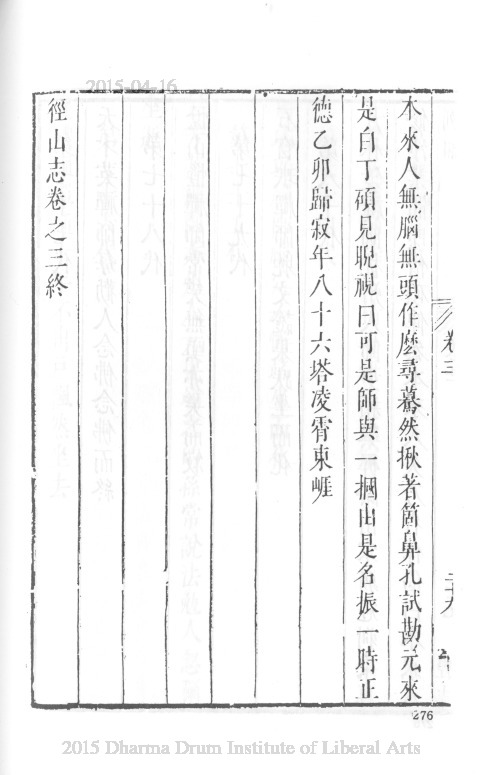 2015-04-16
本來人無腦無頭作麼尋驀然揪著箇鼻孔試勘元來
是白丁碩見睨視曰可是師與一摑由是名振一時正
德乙卯歸寂年八十六塔凌霄東崕
徑山志卷之三終
卷三
276
2015 Dharma Drum Institute of Liberal Arts